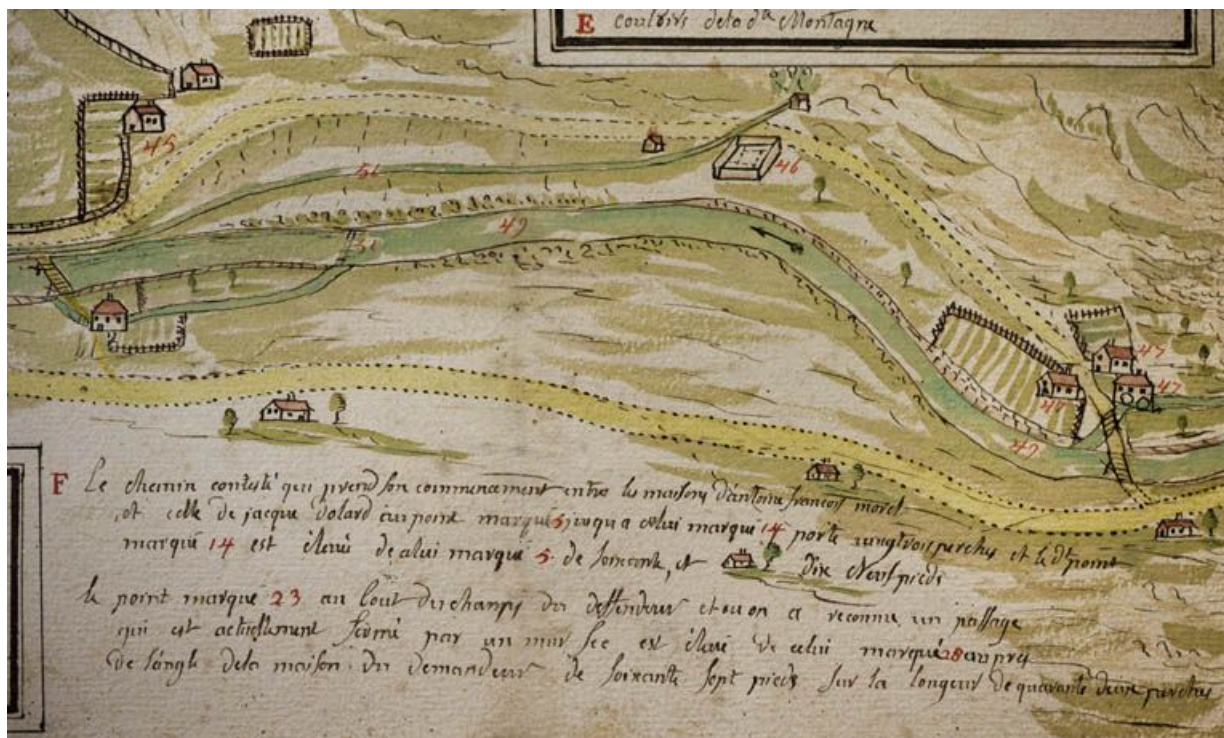 E couloirs de la dte Montagne
45
51
46
49
51
47
47
47
49
F Le chemin contesté qui prend son commencement entre les maisons d'antoine françois morel
et celle de jacque dolard au point marqué 5 jusqu a celui marqué 14 porte vingt trois perches et le dt point
marqué 14 est élevé de celui marqué 5 de soixante, et Dix Neuf pieds
le point marqué 23 au bout du champs du deffendeur et ou on a reconnu un passage
qui est actuellement fermé par un mur sec est élevé de celui marqué 28 au pres
de l'angle de la maison du demandeur de soixante sept pieds sur la longeur de quarante deux perches